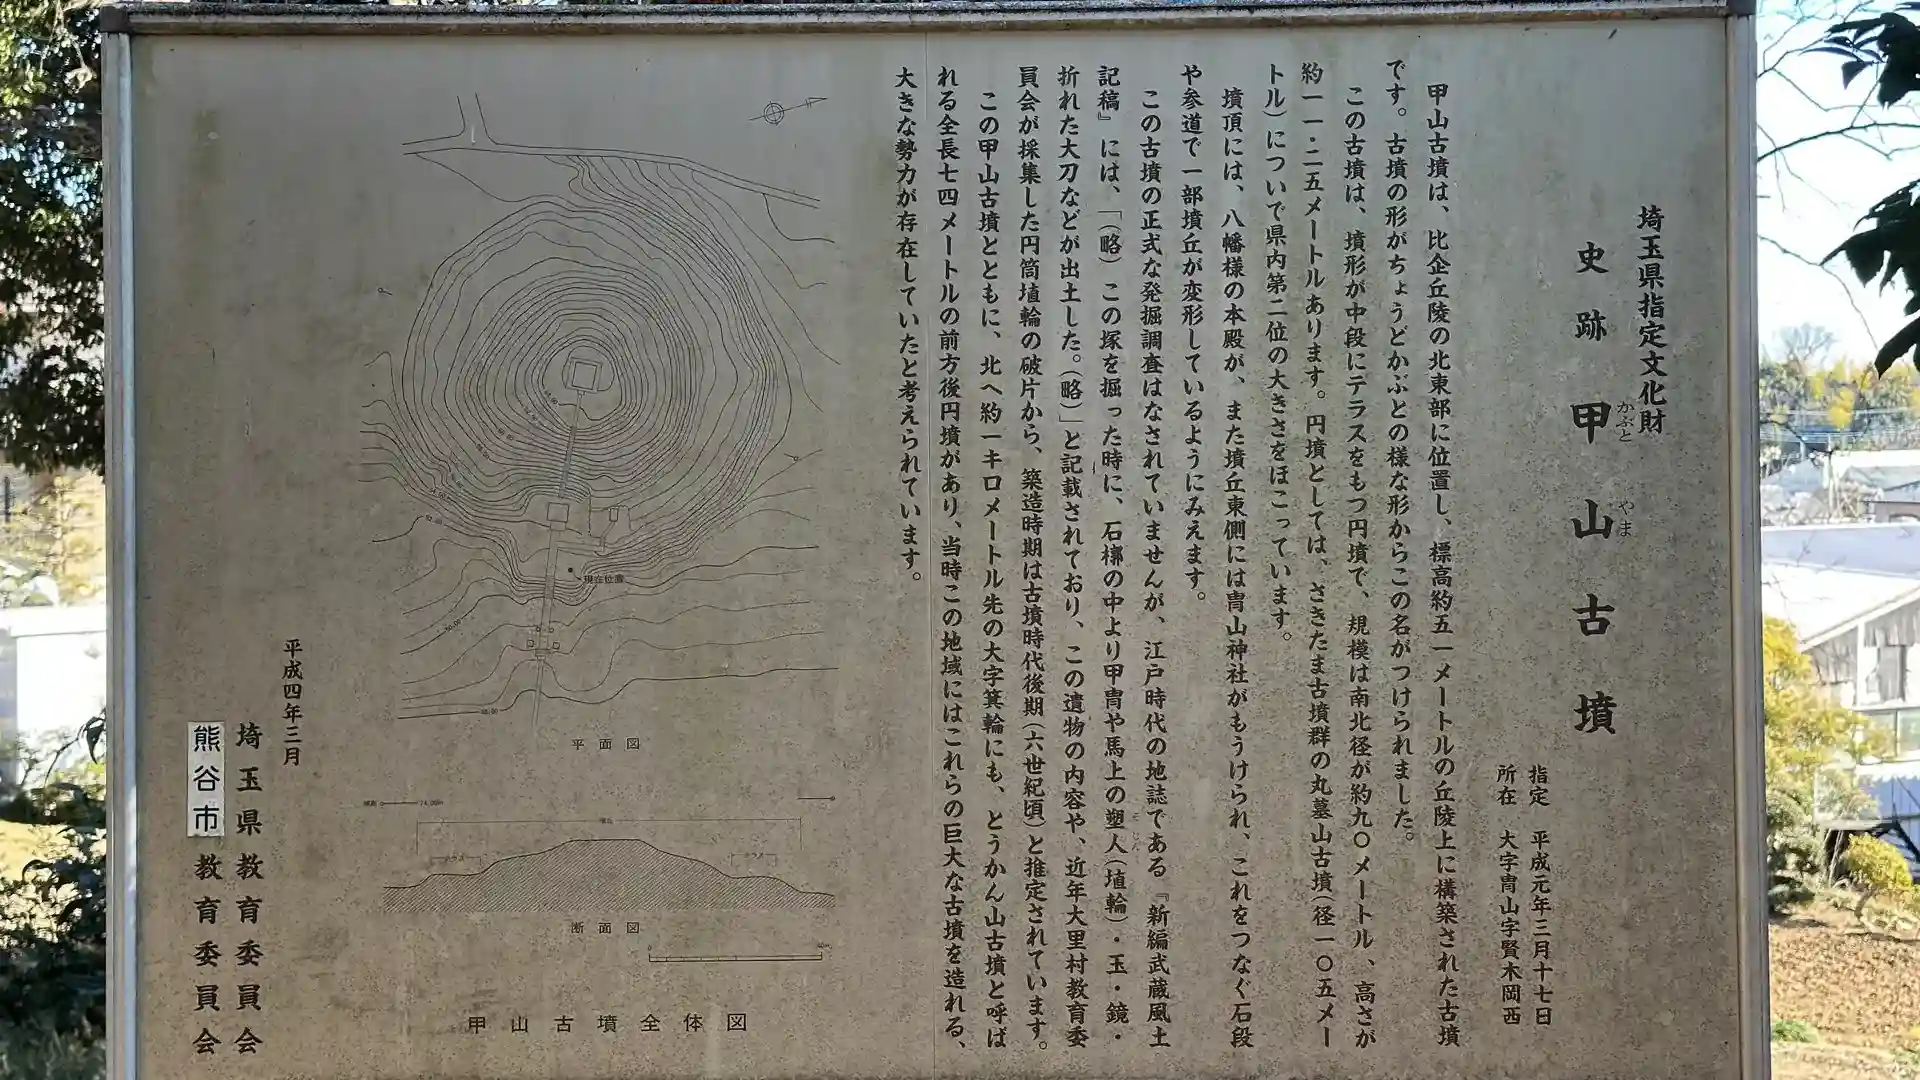 埼玉県指定文化財
史跡 甲山古墳
かぶと やま
指定 平成元年三月十七日
所在 大字冑山字賢木岡西
甲山古墳は、比企丘陵の北東部に位置し、標高約五一メートルの丘陵上に構築された古墳
です。古墳の形がちょうどかぶとの様な形からこの名がつけられました。
この古墳は、墳形が中段にテラスをもつ円墳で、規模は南北径が約九〇メートル、高さが
約一一・二五メートルあります。円墳としては、さきたま古墳群の丸墓山古墳(径一〇五メー
トル)についで県内第二位の大きさをほこっています。
墳頂には、八幡様の本殿が、また墳丘東側には冑山神社がもうけられ、これをつなぐ石段
や参道で一部墳丘が変形しているようにみえます。
この古墳の正式な発掘調査はなされていませんが、江戸時代の地誌である『新編武蔵風土
記稿』には、「(略)この塚を掘った時に、石槨の中より甲冑や馬上の塑人(埴輪)・玉・鏡・
折れた大刀などが出土した。(略)」と記載されており、この遺物の内容や、近年大里村教育委
員会が採集した円筒埴輪の破片から、築造時期は古墳時代後期(六世紀頃)と推定されています。
この甲山古墳とともに、北へ約一キロメートル先の大字箕輪にも、とうかん山古墳と呼ば
れる全長七四メートルの前方後円墳があり、当時この地域にはこれらの巨大な古墳を造れる、
大きな勢力が存在していたと考えられています。
現在位置
平面図
断面図
甲山古墳全体図
平成四年三月
埼玉県教育委員会
熊谷市教育委員会